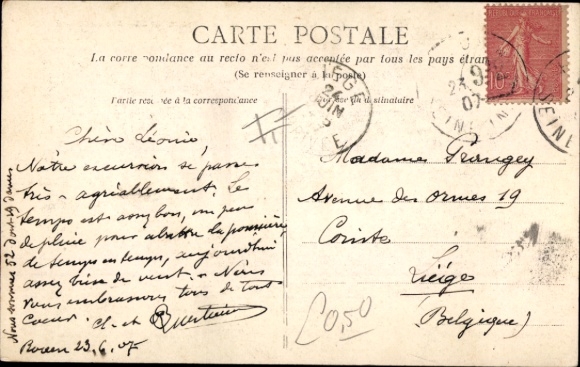 CARTE POSTALE
La correspondance au recto n'est pas acceptée par tous les pays étran
(Se renseigner à la poste)
Partie réservée à la correspondance
destinataire
Chère Léonie,
Nôtre excursion se passe
très agréablement. Le
temps est assez bon, un peu
de pluie pour abattre la poussière
de temps en temps, aujourd'hui
assez bien de vent. Nous
vous embrassons tous de tout
coeur. Cl. et
Rouen 23.6.07
Nous sommes 52 dont 19 dames
Madame Prangey
Avenue des Ormes 19
Cointe
Liége
(Belgique)
0,50
10
LIEGE
24
JUIN
SEINE
07